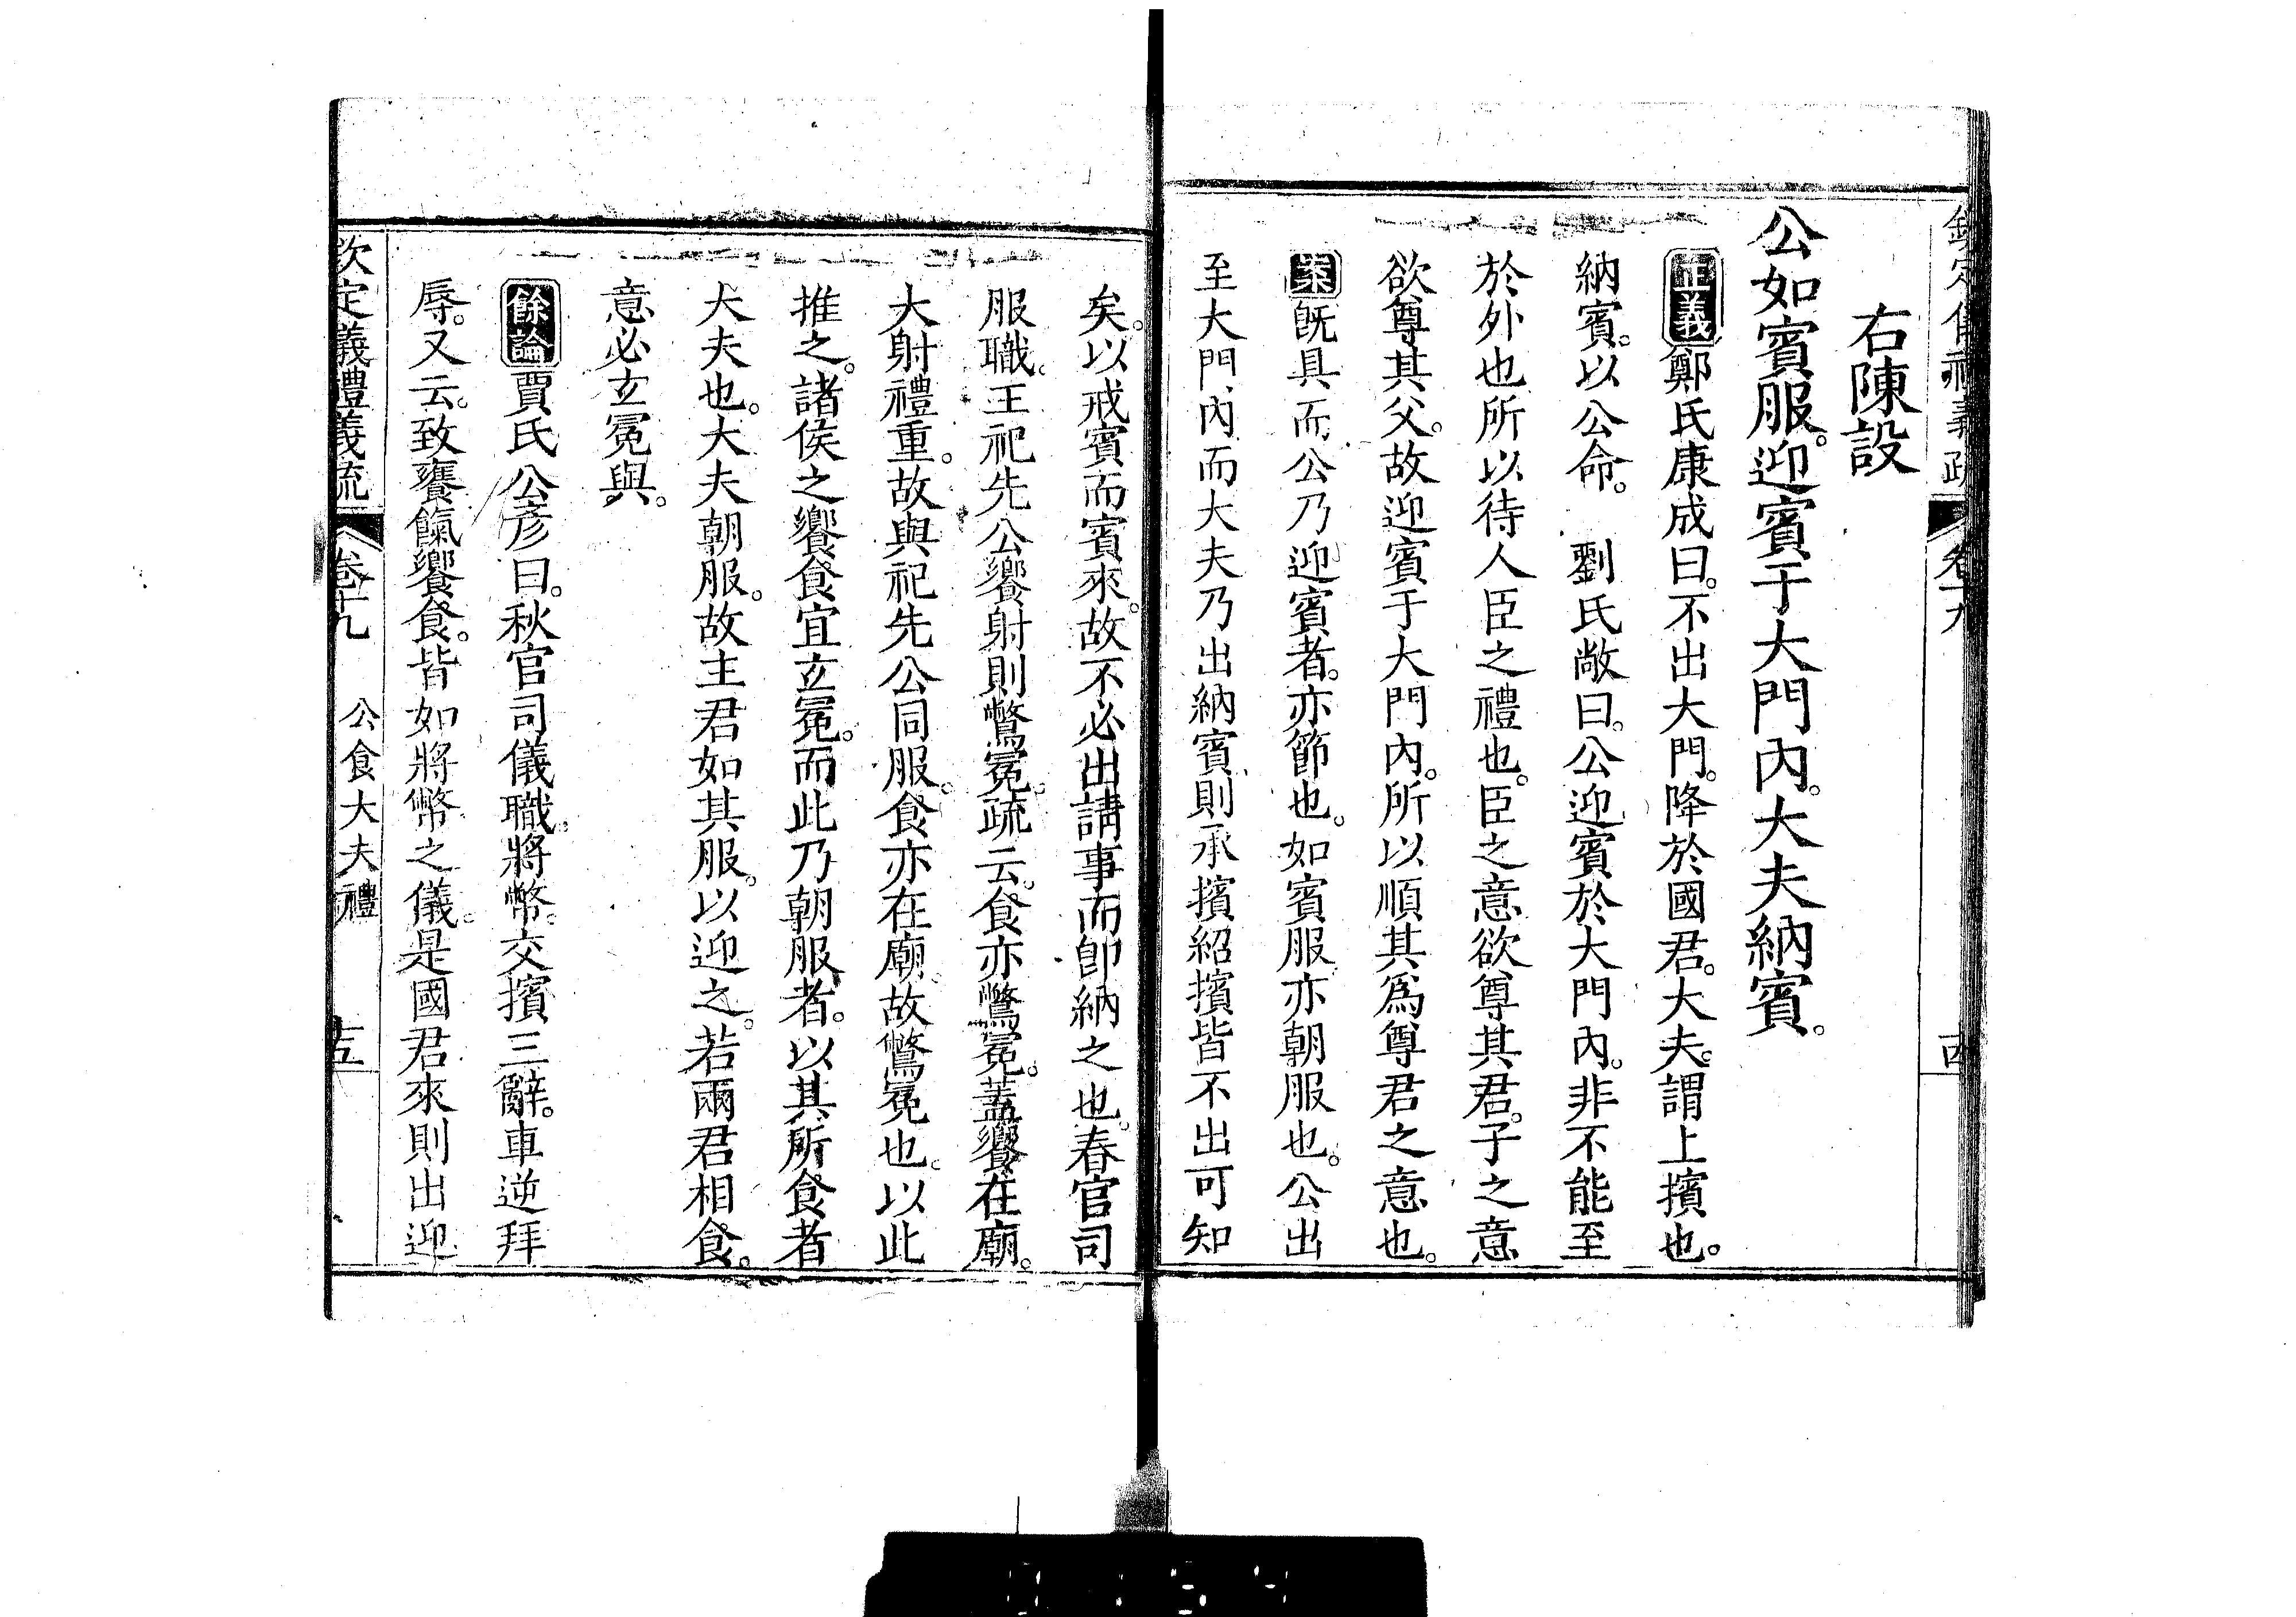 欽定儀禮義疏 卷十九 古
右陳設
公如賓服。迎賓于大門內。大夫納賓。
正義鄭氏康成曰。不出大門。降於國君。大夫。謂上擯也。
納賓。以公命。 劉氏敞曰。公迎賓於大門內。非不能至
於外也所以待人臣之禮也。臣之意欲尊其君。子之意
欲尊其父。故迎賓于大門內。所以順其為尊君之意也。
案既具而公乃迎賓者。亦節也。如賓服亦朝服也。公出
至大門內而大夫乃出納賓則承擯紹擯皆不出可知
矣。以戒賓而賓來。故不必出請事而卽納之也。春官司
服職。王祀先公饗射則鷩冕。疏云。食亦鷩冕。蓋饗在廟。
大射禮重。故與祀先公同服。食亦在廟。故鷩冕也。以此
推之。諸侯之饗食宜玄冕。而此乃朝服者。以其所食者
大夫也。大夫朝服。故主君如其服。以迎之。若兩君相食。
意必玄冕與。
餘論賈氏公彥曰。秋官司儀職。將幣。交擯三辭。車逆拜
辱。又云。致饔餼饗食。皆如將幣之儀。是國君來則出迎
欽定儀禮義疏 卷十九 公食大夫禮 十五